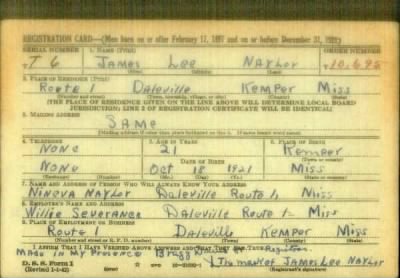 REGISTRATION CARD—(Men born on or after February 17, 1897 and on or before December 31, 1921)
SERIAL NUMBER 1. NAME (Print) ORDER NUMBER
T 6 James Lee Naylor 10,692
(First) (Middle) (Last)
2. PLACE OF RESIDENCE (Print)
Route 1 Daleville Kemper Miss
(Number and street) (Town, township, village, or city) (County) (State)
(THE PLACE OF RESIDENCE GIVEN ON THE LINE ABOVE WILL DETERMINE LOCAL BOARD
JURISDICTION; LINE 2 OF REGISTRATION CERTIFICATE WILL BE IDENTICAL)
3. MAILING ADDRESS
SAME
(Mailing address if other than place indicated on line 2. If same insert word same)
4. TELEPHONE 5. AGE IN YEARS 6. PLACE OF BIRTH
NONE 21 Kemper
DATE OF BIRTH (Town or county)
NONE Oct 18 1921 Miss
7. NAME AND ADDRESS OF PERSON WHO WILL ALWAYS KNOW YOUR ADDRESS
Naylor Daleville Route 1, Miss
8. EMPLOYER'S NAME AND ADDRESS
Willie Severance Daleville Route 1- Miss
9. PLACE OF EMPLOYMENT OR BUSINESS
Route 1 Daleville Kemper Miss
(Number and street or R. F. D. number) (Town) (County) (State)
I AFFIRM THAT I HAVE VERIFIED ABOVE ANSWERS AND THAT THEY ARE TRUE.
Made in My Presence Registrar
The mark of James Lee Naylor
D. S. S. Form 1
(Revised 1-1-42) (Registrant's signature)